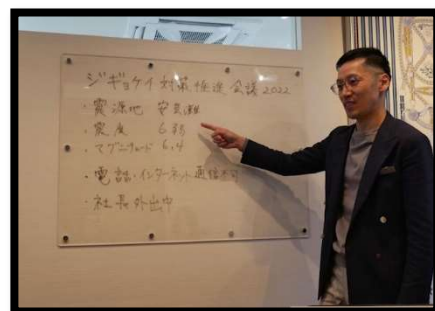 ジギョケイ対策推進会議2022
・震源地 安芸灘
・震度 6弱
・マグニチュード 6.4
・電話・インターネット通信不可
・社長外出中